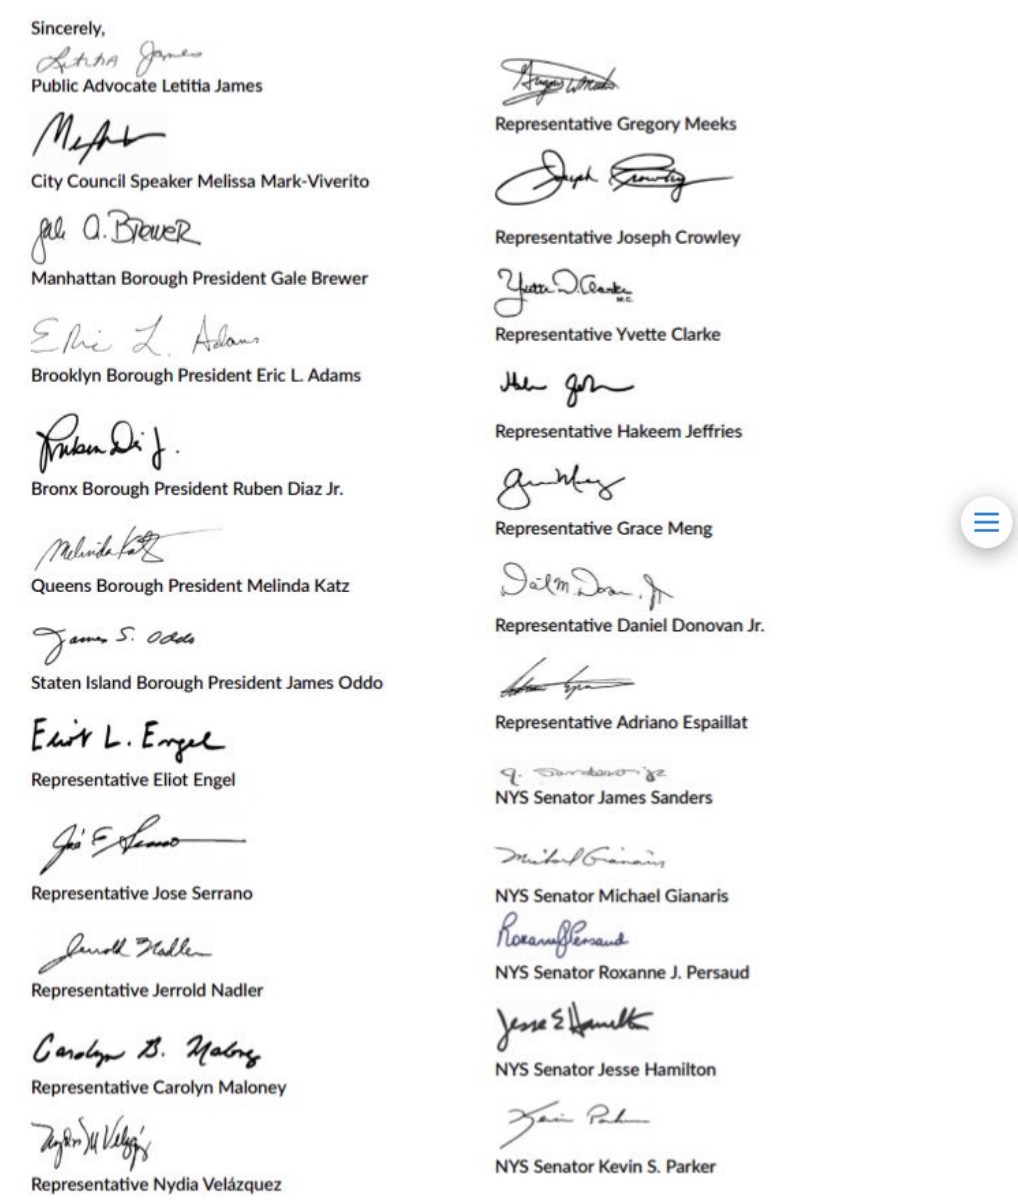 Sincerely,
Letitia James
Public Advocate Letitia James
City Council Speaker Melissa Mark-Viverito
Gale A. Brewer
Manhattan Borough President Gale Brewer
Eric L. Adams
Brooklyn Borough President Eric L. Adams
Ruben Diaz Jr.
Bronx Borough President Ruben Diaz Jr.
Melinda Katz
Queens Borough President Melinda Katz
James S. Oddo
Staten Island Borough President James Oddo
Eliot L. Engel
Representative Eliot Engel
José E. Serrano
Representative Jose Serrano
Jerrold Nadler
Representative Jerrold Nadler
Carolyn B. Maloney
Representative Carolyn Maloney
Representative Nydia Velázquez
Gregory W. Meeks
Representative Gregory Meeks
Joseph Crowley
Representative Joseph Crowley
Yvette D. Clarke
M.C.
Representative Yvette Clarke
Representative Hakeem Jeffries
Grace Meng
Representative Grace Meng
Representative Daniel Donovan Jr.
Representative Adriano Espaillat
J. Sanders Jr
NYS Senator James Sanders
Michael Gianaris
NYS Senator Michael Gianaris
Roxanne J Persaud
NYS Senator Roxanne J. Persaud
Jesse E Hamilton
NYS Senator Jesse Hamilton
Kevin Parker
NYS Senator Kevin S. Parker